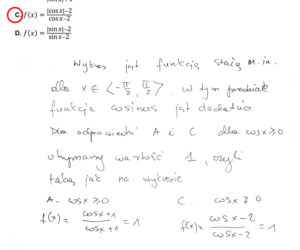 C. f(x) = |cosx|-2 / cosx-2
D. f(x) = |sinx|-2 / sinx-2
Wykres jest funkcją stałą m.in.
dla x ∈ ⟨-π/2, π/2⟩. W tym przedziale
funkcja cosinus jest dodatnia.
Dla odpowiedzi A i C dla cosx≥0
otrzymamy wartość 1, czyli
taką jak na wykresie
A. cosx≥0 C. cosx≥0
f(x) = cosx+1 / cosx+1 = 1 f(x) = cosx-2 / cosx-2 = 1